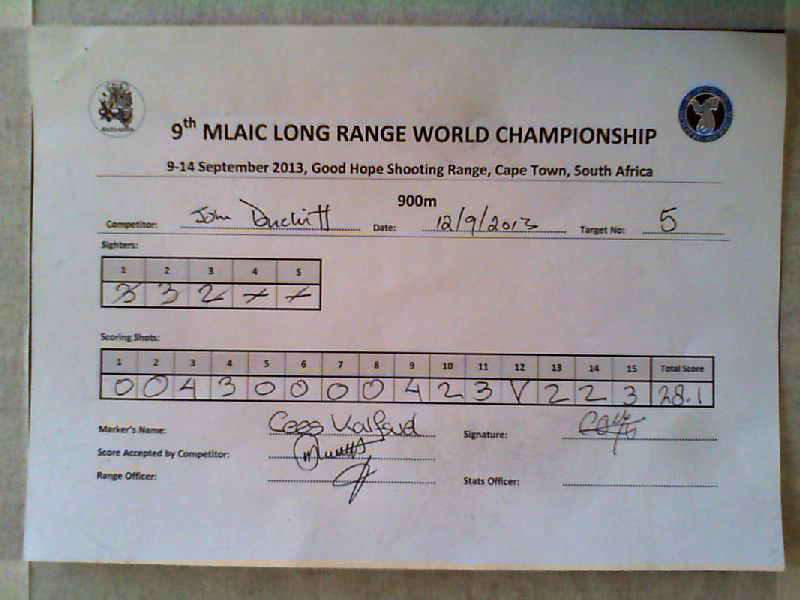 9th MLAIC LONG RANGE WORLD CHAMPIONSHIP
9-14 September 2013, Good Hope Shooting Range, Cape Town, South Africa
900m
Competitor: John Duckitt Date: 12/9/2013 Target No: 5
Sighters:
1 2 3 4 5
3 3 2 + +
Scoring Shots:
1 2 3 4 5 6 7 8 9 10 11 12 13 14 15 Total Score
0 0 4 3 0 0 0 0 4 2 3 V 2 2 3 28.1
Marker's Name: Signature:
Score Accepted by Competitor:
Range Officer: Stats Officer: